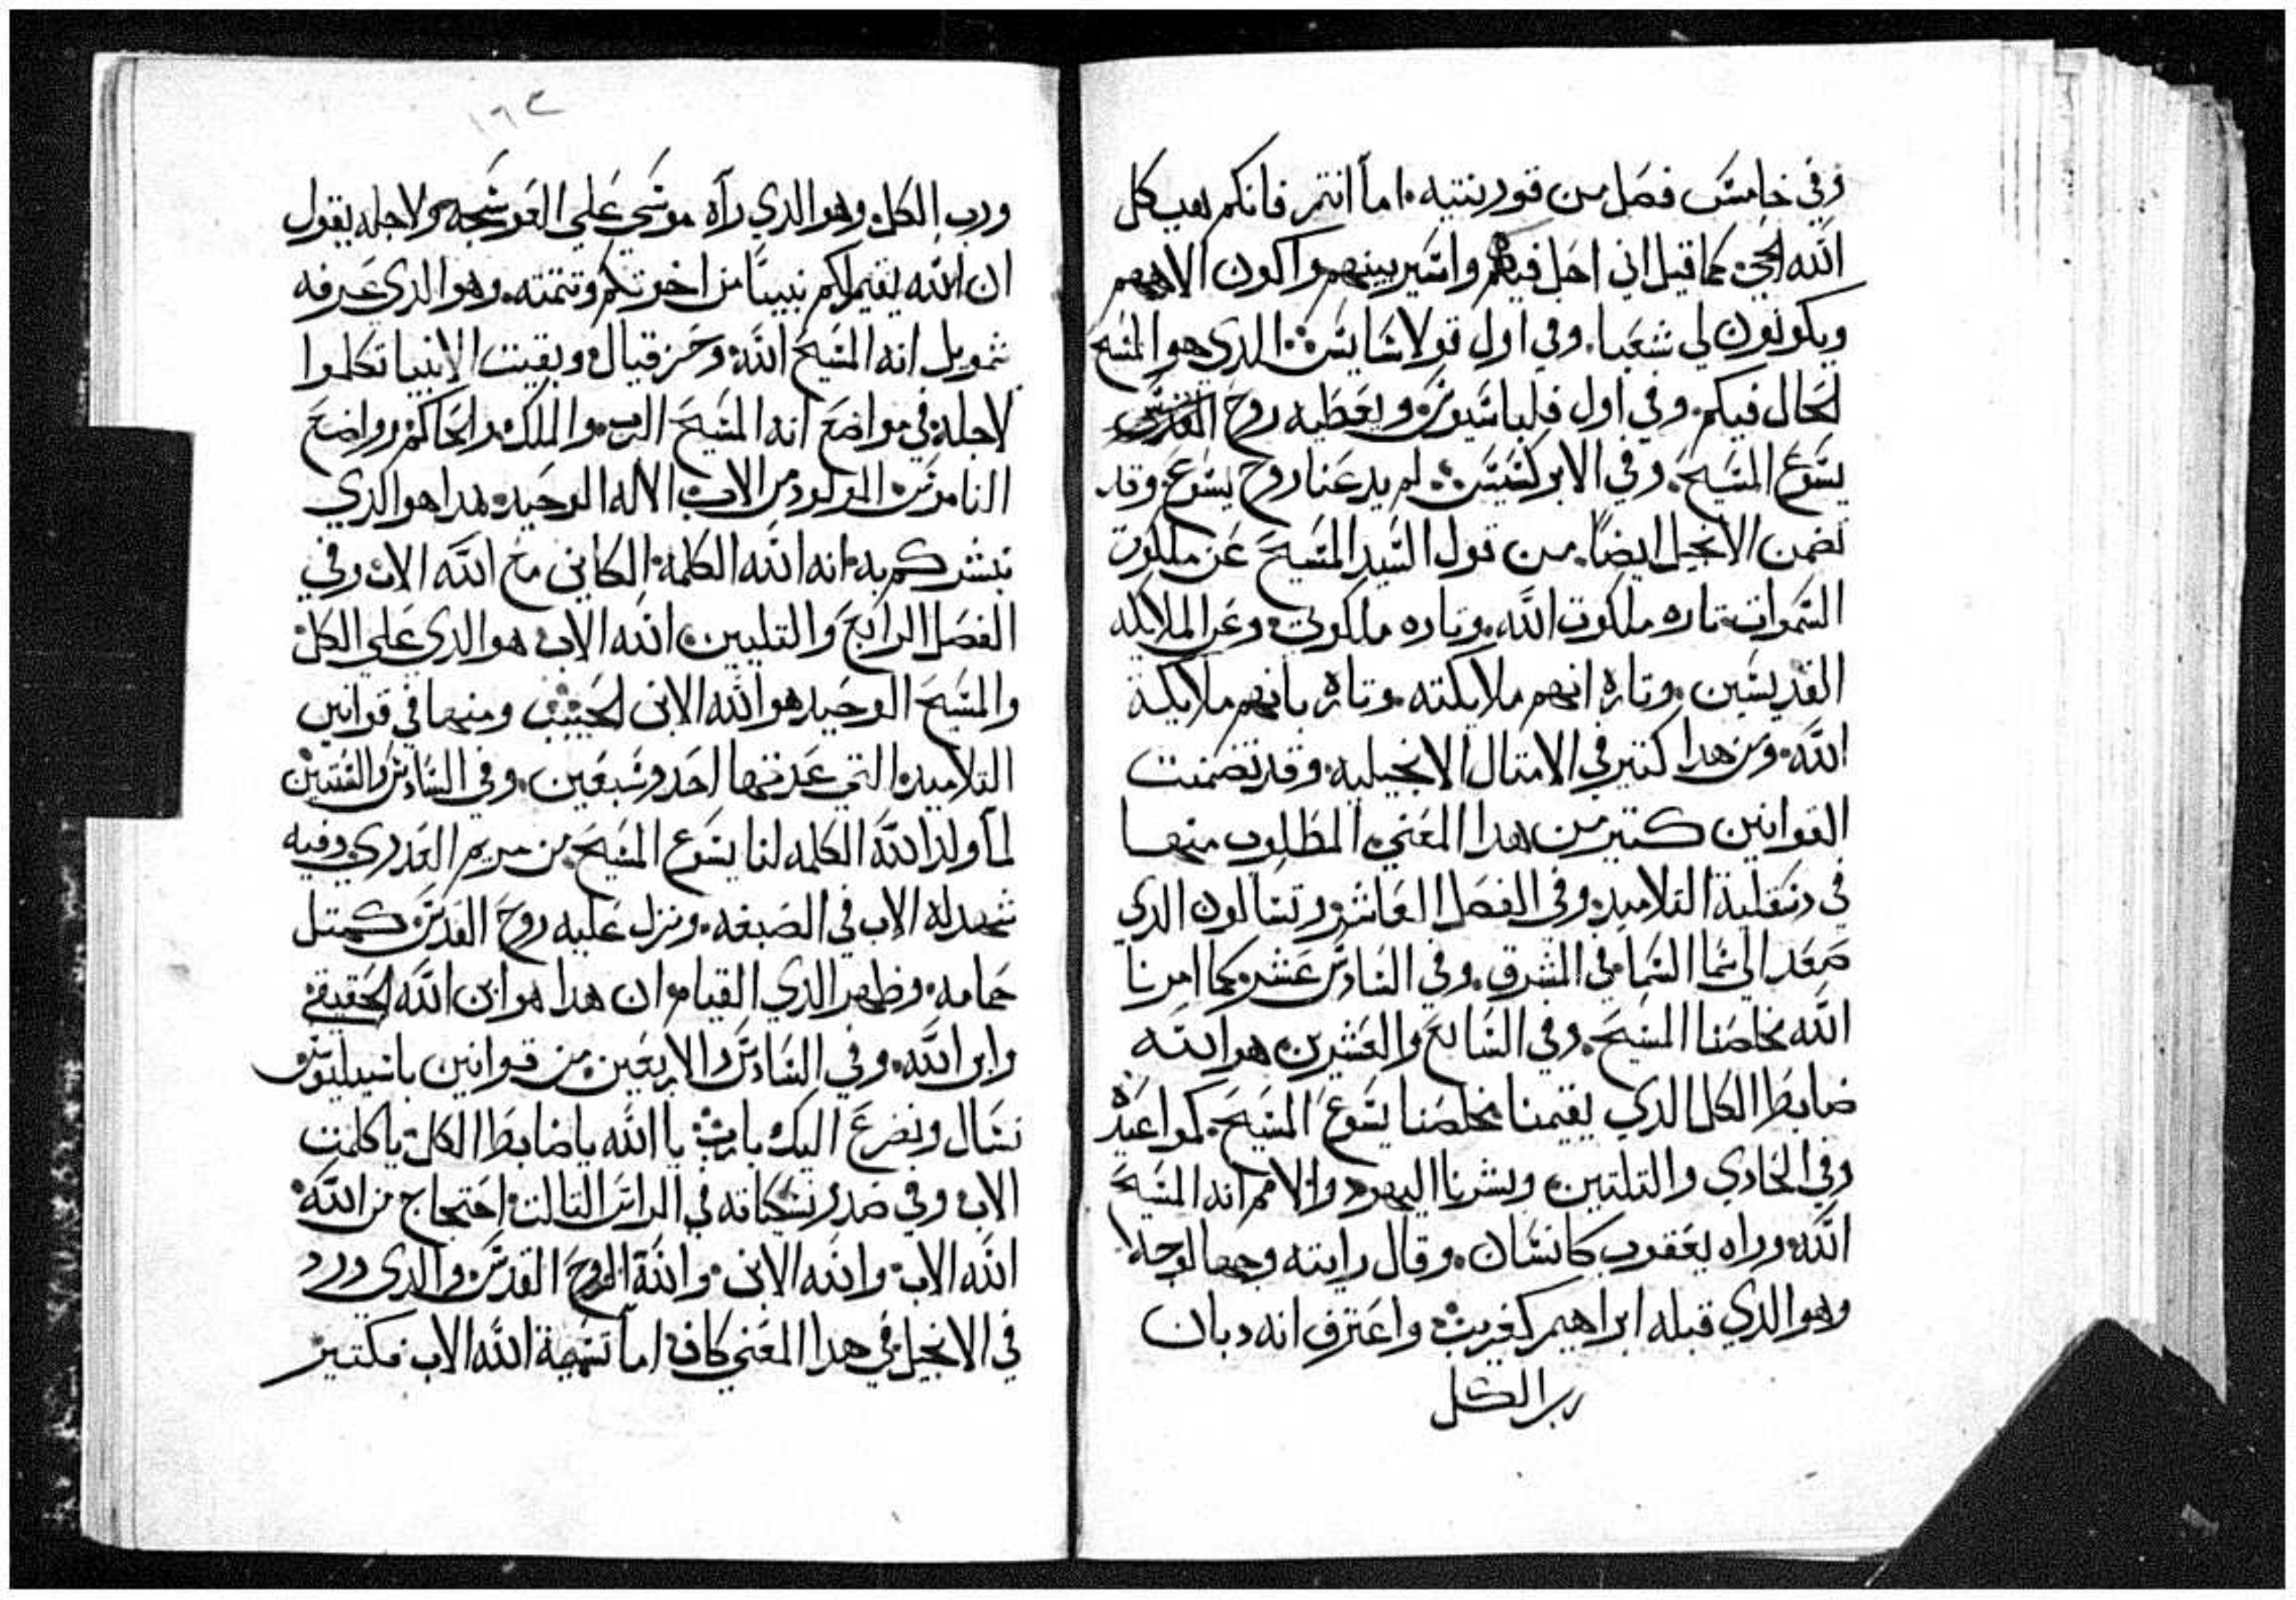 وفي خامس فصل من قورنتيه. اما انتم فانكم هيكل
الله الحي. كما قيل اني احل فيكم واسير بينهم واكون الاههم
ويكونون لي شعبا. وفي اول قولاسايس. الدي هو المسيح
الحال فيكم. وفي اول فيلباسيوس ويعطيه روح القدس
يسوع المسيح. وفي الابركسيس. لم يدعنا روح يسوع. وقد
تضمن الانجيل ايضاً. من قول السيد المسيح عن ملكوت
السموات تاره ملكوت الله. وتاره ملكوتي. وعن الملايكه
القديسين. وتاره انهم ملايكته. وتاره بانهم ملايكة
الله. ومن هدا كتير في الامتال الانجيليه. وقد تضمنت
القوانين كتير من هدا المعني المطلوب منها
في دسقلية التلاميد. وفي الفصل العاشر. وتسالون الدي
صعد الي سما السما في المشرق. وفي السادس عشر. كما امرنا
الله مخلصنا المسيح. وفي السابع والعشرين هو الله
ضابط الكل الدي يقيمنا مخلصنا يسوع المسيح. كمواعيده
وفي الحادي والتلتين وبشرنا اليهود والامم انه المسيح
الله. وراه يعقوب كانسان. وقال رايته وجها لوجه
وهو الدي قبله ابراهيم كغريب. واعترف انه ديان
رب الكل
١٦٣
ورب الكل. وهو الدي رآه موسي علي العوسجه. ولاجله يقول
ان الله يقيم لكم نبيياً من اخوتكم وتتمته. وهو الدي عرفه
شمويل انه المسيح الله. وحزقيال. وبقيت الانبيا تكلموا
لاجله في مواضع انه المسيح الرب والملك. والحاكم. وواضع
الناموس. المولود من الاب. الاله الوحيد. هدا هو الدي
نبشركم به. انه الله الكلمه. الكاين مع الله الاب. وفي
الفصل الرابع والتلتين. الله الاب هو الدي علي الكل
والمسيح الوحيد هو الله الابن الحبيب ومنها في قوانين
التلاميد. التي عدتها احد وسبعين. وفي السادس والستين
لما ولد الله الكلمه لنا يسوع المسيح. من مريم العدري وفيه
شهد له الاب في الصبغه. ونزل عليه روح القدس كمتل
حمامه. وظهر الدي القيام ان هدا هو ابن الله الحقيقي
وابن الله. وفي السادس والاربعين. من قوانين باسيليوس
نسال ونضرع اليك يارب. يا الله يا ضابط الكل. ياكلمت
الاب وفي صدر نسكياته في الراس التالت. احتجاج من الله
الله الاب. والله الابن. والله الروح القدس. والدي ورد
في الانجيل في هدا المعني كاف. اما تسمية الله الاب فكتير